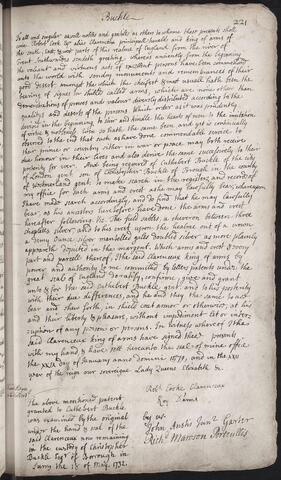 Buckle
221
To all and singular as well nobles and gentils as others to whom these presents shall
come Robert Cook Esqr alias Clarencieux principall herauld and king of arms of
the south, east, & west parts of this realme of England from the river of
Trent Southwardes sendeth greeting whereas annciently from the beginning
the valiant and virtuous acts of excellent persons have been commended
unto the world with sundry monuments and remembrances of their
good desert amongst the which the chiefest & most usuall hath been the
bearing of signes in shields called arms, which are none other than
demonstrations of prowes and valour diversly distributed according to the
qualities and deserts of the persons which order as it was prudently
devised in the beginning to stir and kindle the hearts of men to the imitation
of virtue & nobleness even so hath the same been and yet is continually
observed to the end that such as have done commendable service to
their prince or country either in war or peace may both receive
due honour in their lives and also derive the same successively to their
posterity for ever. And being required of Cuthbert Buckle of the city
of London gent son of Christopher Buckle of Brough in the county
of Westmorland gent. to make search in the registers and records of
my office for such arms and crest as he may lawfully bear, whereupon
I have made search accordingly, and do find that he may lawfully
bear, as his ancestors heretofore have done the arms and crest
hereafter following Viz. The field sables a cheveron betwene three
chaplets silver, and to his crest upon the healme out of a
a demy Ounce silver mantelled gules doubled silver as more plainly
appeareth depicted in the margent. Which arms and crest & every
part and parcell thereof, I the said Clarencieux king of arms by
power and authority to me committed by letters patents under the
great seale of England do ratify, confirme, give and grant
unto & for the said Cuthbert Buckle gent. and to his posterity
with their due differences, and he and they the same to use
bear and shew forth in shield coat armor or otherwise, at his
and their liberty & pleasure, without impediment let or inter-
ruption of any person or persons. In witness whereof I the
said Clarencieux king of arms have signed these presents
with my hand & have sett hereunto the seale of mine office
the day of January anno domini 1579, and in the xxi
year of the reign our sovereign Lady Queene Elizabeth &c.
Robt. Cooke Clarencieux
Roy d'arms
The above mentioned patent
granted to Cuthbert Buckle
was examined by the original
under the hand & seal of the
said Clarenceux now remaining
in the custody of Christopher
Buckle Esqr. of Borough in
Surry the 18 of May. 1732.
by us.
John Anstis Junr. Garter
Richd. Mawson Portcullis